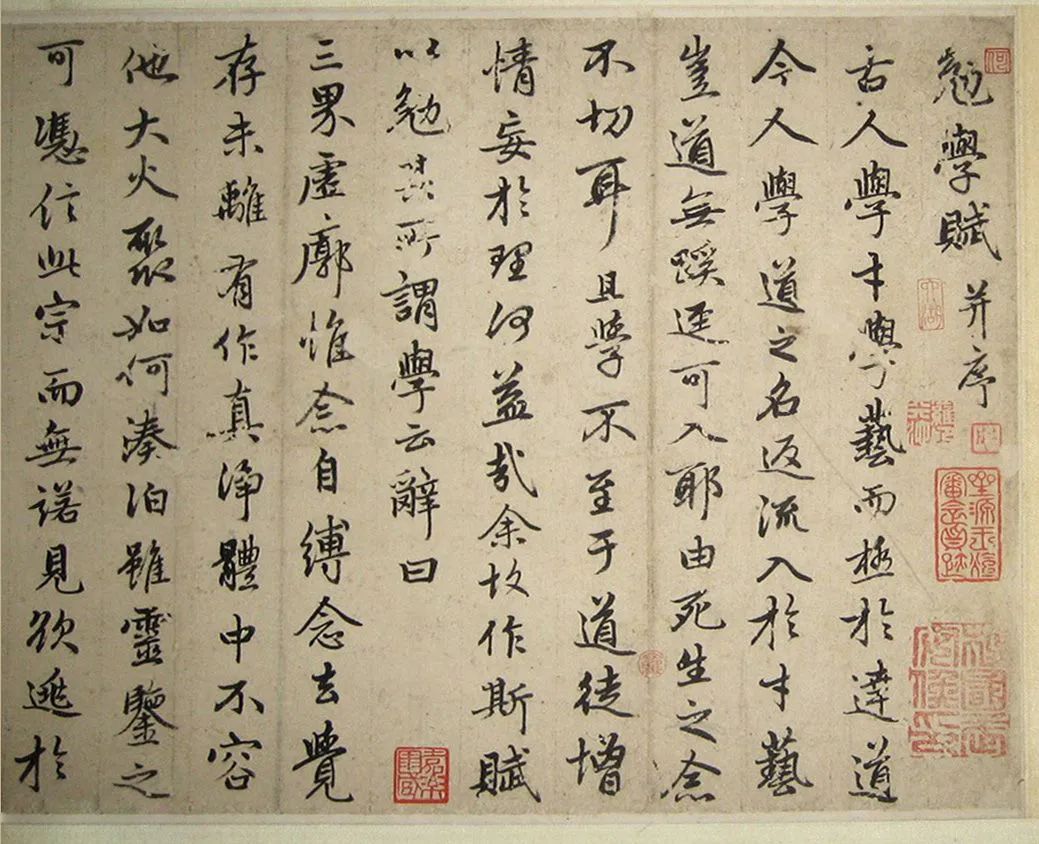 勉學賦 并序
古人學才學藝而極於達道
今人學道之名返流入於才藝
豈道無蹊逕可入耶由死生之念
不切耳且學不至于道徒增
情妄於理何益哉余故作斯賦
以勉其所謂學云辭曰
三界虛廓惟念自縛念去覺
存未離有作真淨體中不容
他大火聚如何湊泊雖靈鑒之
可憑信此宗而無諾見欲逃於